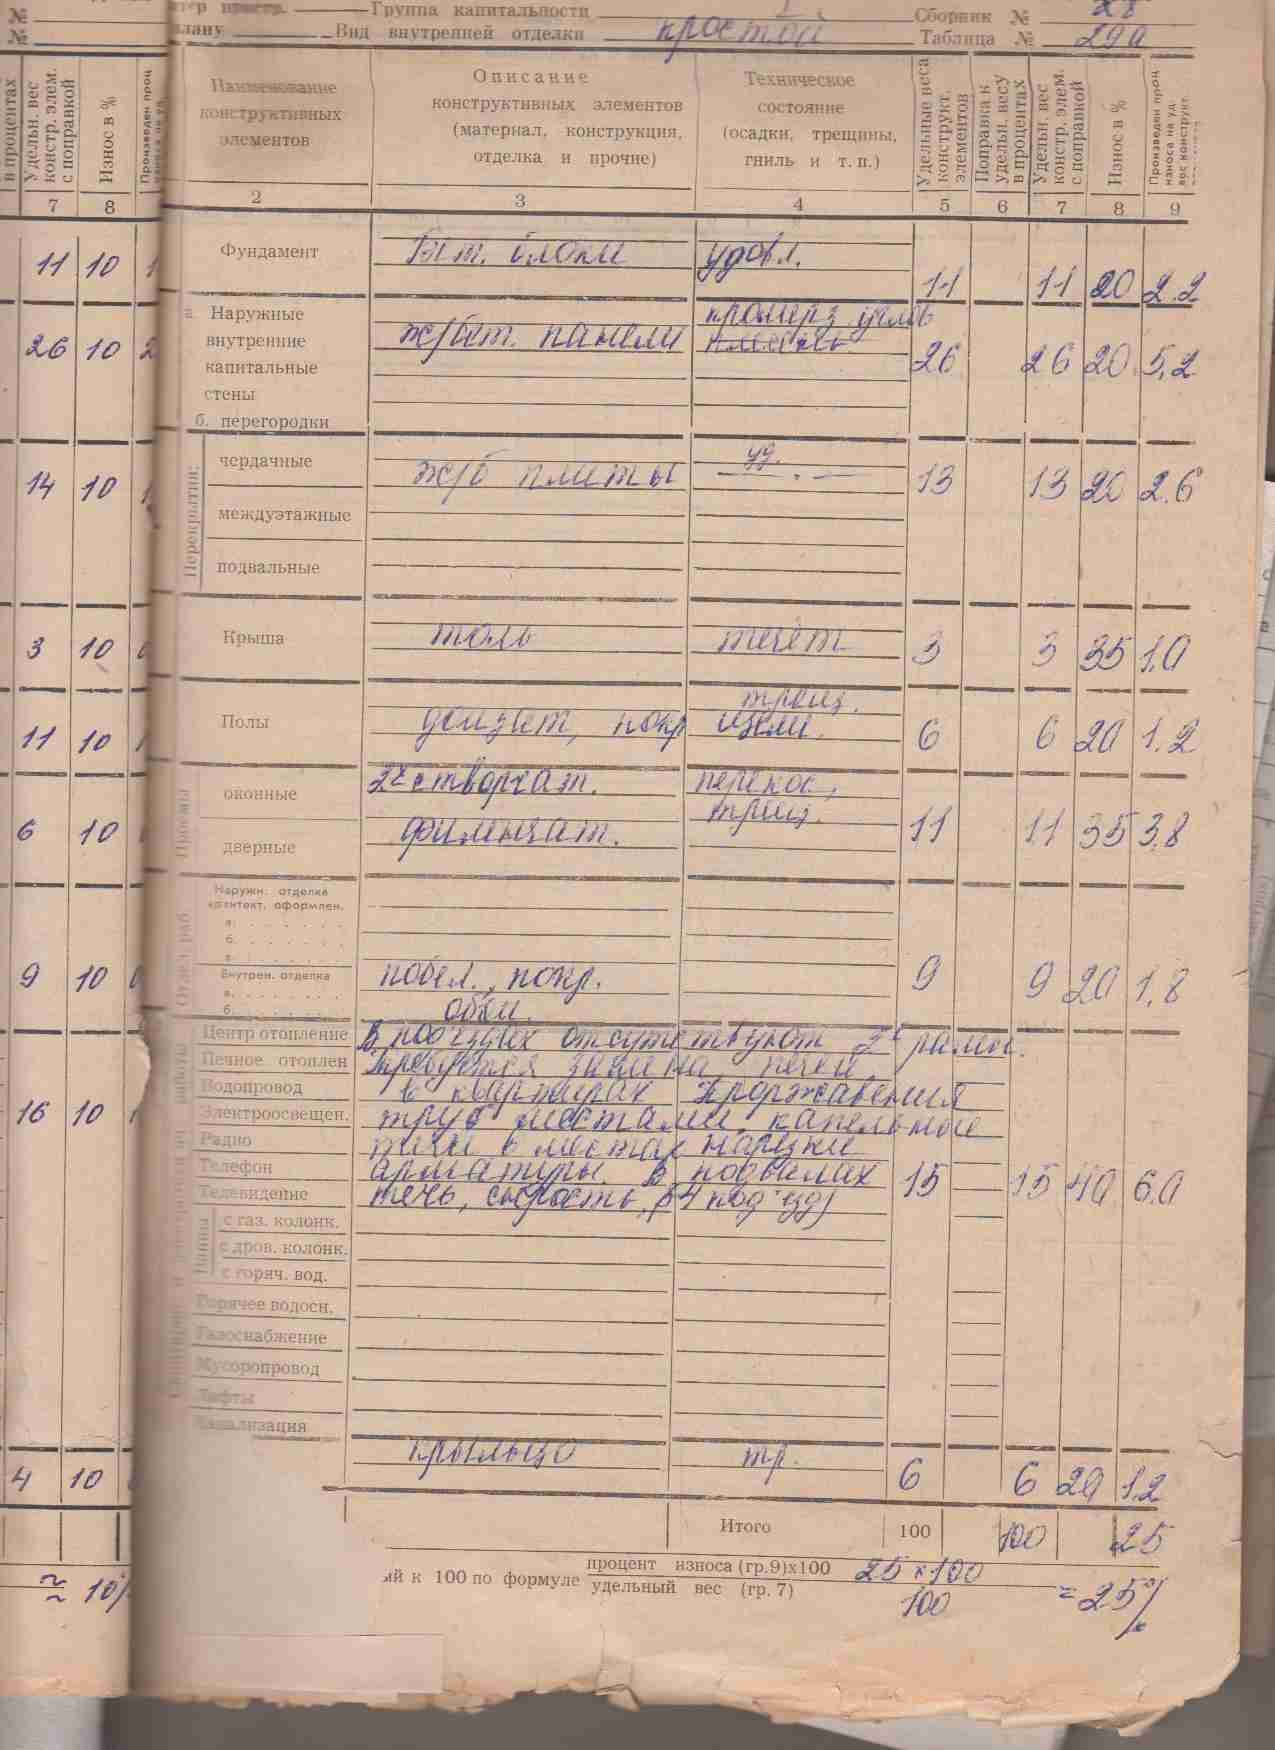 №
№
Группа капитальности I Сборник № 28
плану Вид внутренней отделки простой Таблица № 29а
в процентах
Удельн. вес констр. элем. с поправкой
Износ в %
Произведен проц
7 8
Наименование конструктивных элементов
Описание конструктивных элементов (материал, конструкция, отделка и прочие)
Техническое состояние (осадки, трещины, гниль и т. п.)
Удельные веса конструкт. элементов
Поправка к удельн. весу в процентах
Удельн. вес констр. элем. с поправкой
Износ в %
Произведен проц износа на уд. вес конструкт.
2 3 4 5 6 7 8 9
11 10 1
Фундамент бет. блоки удовл. 11 11 20 2.2
а. Наружные промерз. углов
26 10 2
внутренние ж/бет. панели 26 26 20 5,2
капитальные
стены
б. перегородки
Перекрытия:
14 10 1
чердачные ж/б плиты уд. 13 13 20 2.6
междуэтажные
подвальные
3 10 0
Крыша толь течёт 3 3 35 1,0
11 10 1
Полы дощат, покр трещ. щели. 6 6 20 1.2
Проемы
6 10
оконные 2х створчат. перекос,
трещ.
дверные филенчат. 11 11 35 3,8
Отдел. раб
Наружн. отделка
архитект. оформлен.
а.
б.
в.
9 10 0
Внутрен. отделка побел., покр. 9 9 20 1,8
а.
б. обои.
Центр отопление В под'ездах отсутствуют 2е рамы.
Печное отоплен Требуется замена печей.
Водопровод в квартирах Проржавения
16 10 1
Электроосвещен. труб местами, капельные
Радио течи в местах нарезки
Телефон арматуры. В подвалах
Телевидение течь, сырость, (4 под'езд) 15 15 40 6.0
Ванны
с газ. колонк.
с дров. колонк.
с горяч. вод.
Горячее водосн.
Газоснабжение
Мусоропровод
Лифты
Канализация
4 10
крыльцо тр. 6 6 20 1.2
Итого 100 100 25
≈ 10%
ый к 100 по формуле процент износа (гр.9)х100 25 х 100
удельный вес (гр. 7) 100 = 25%